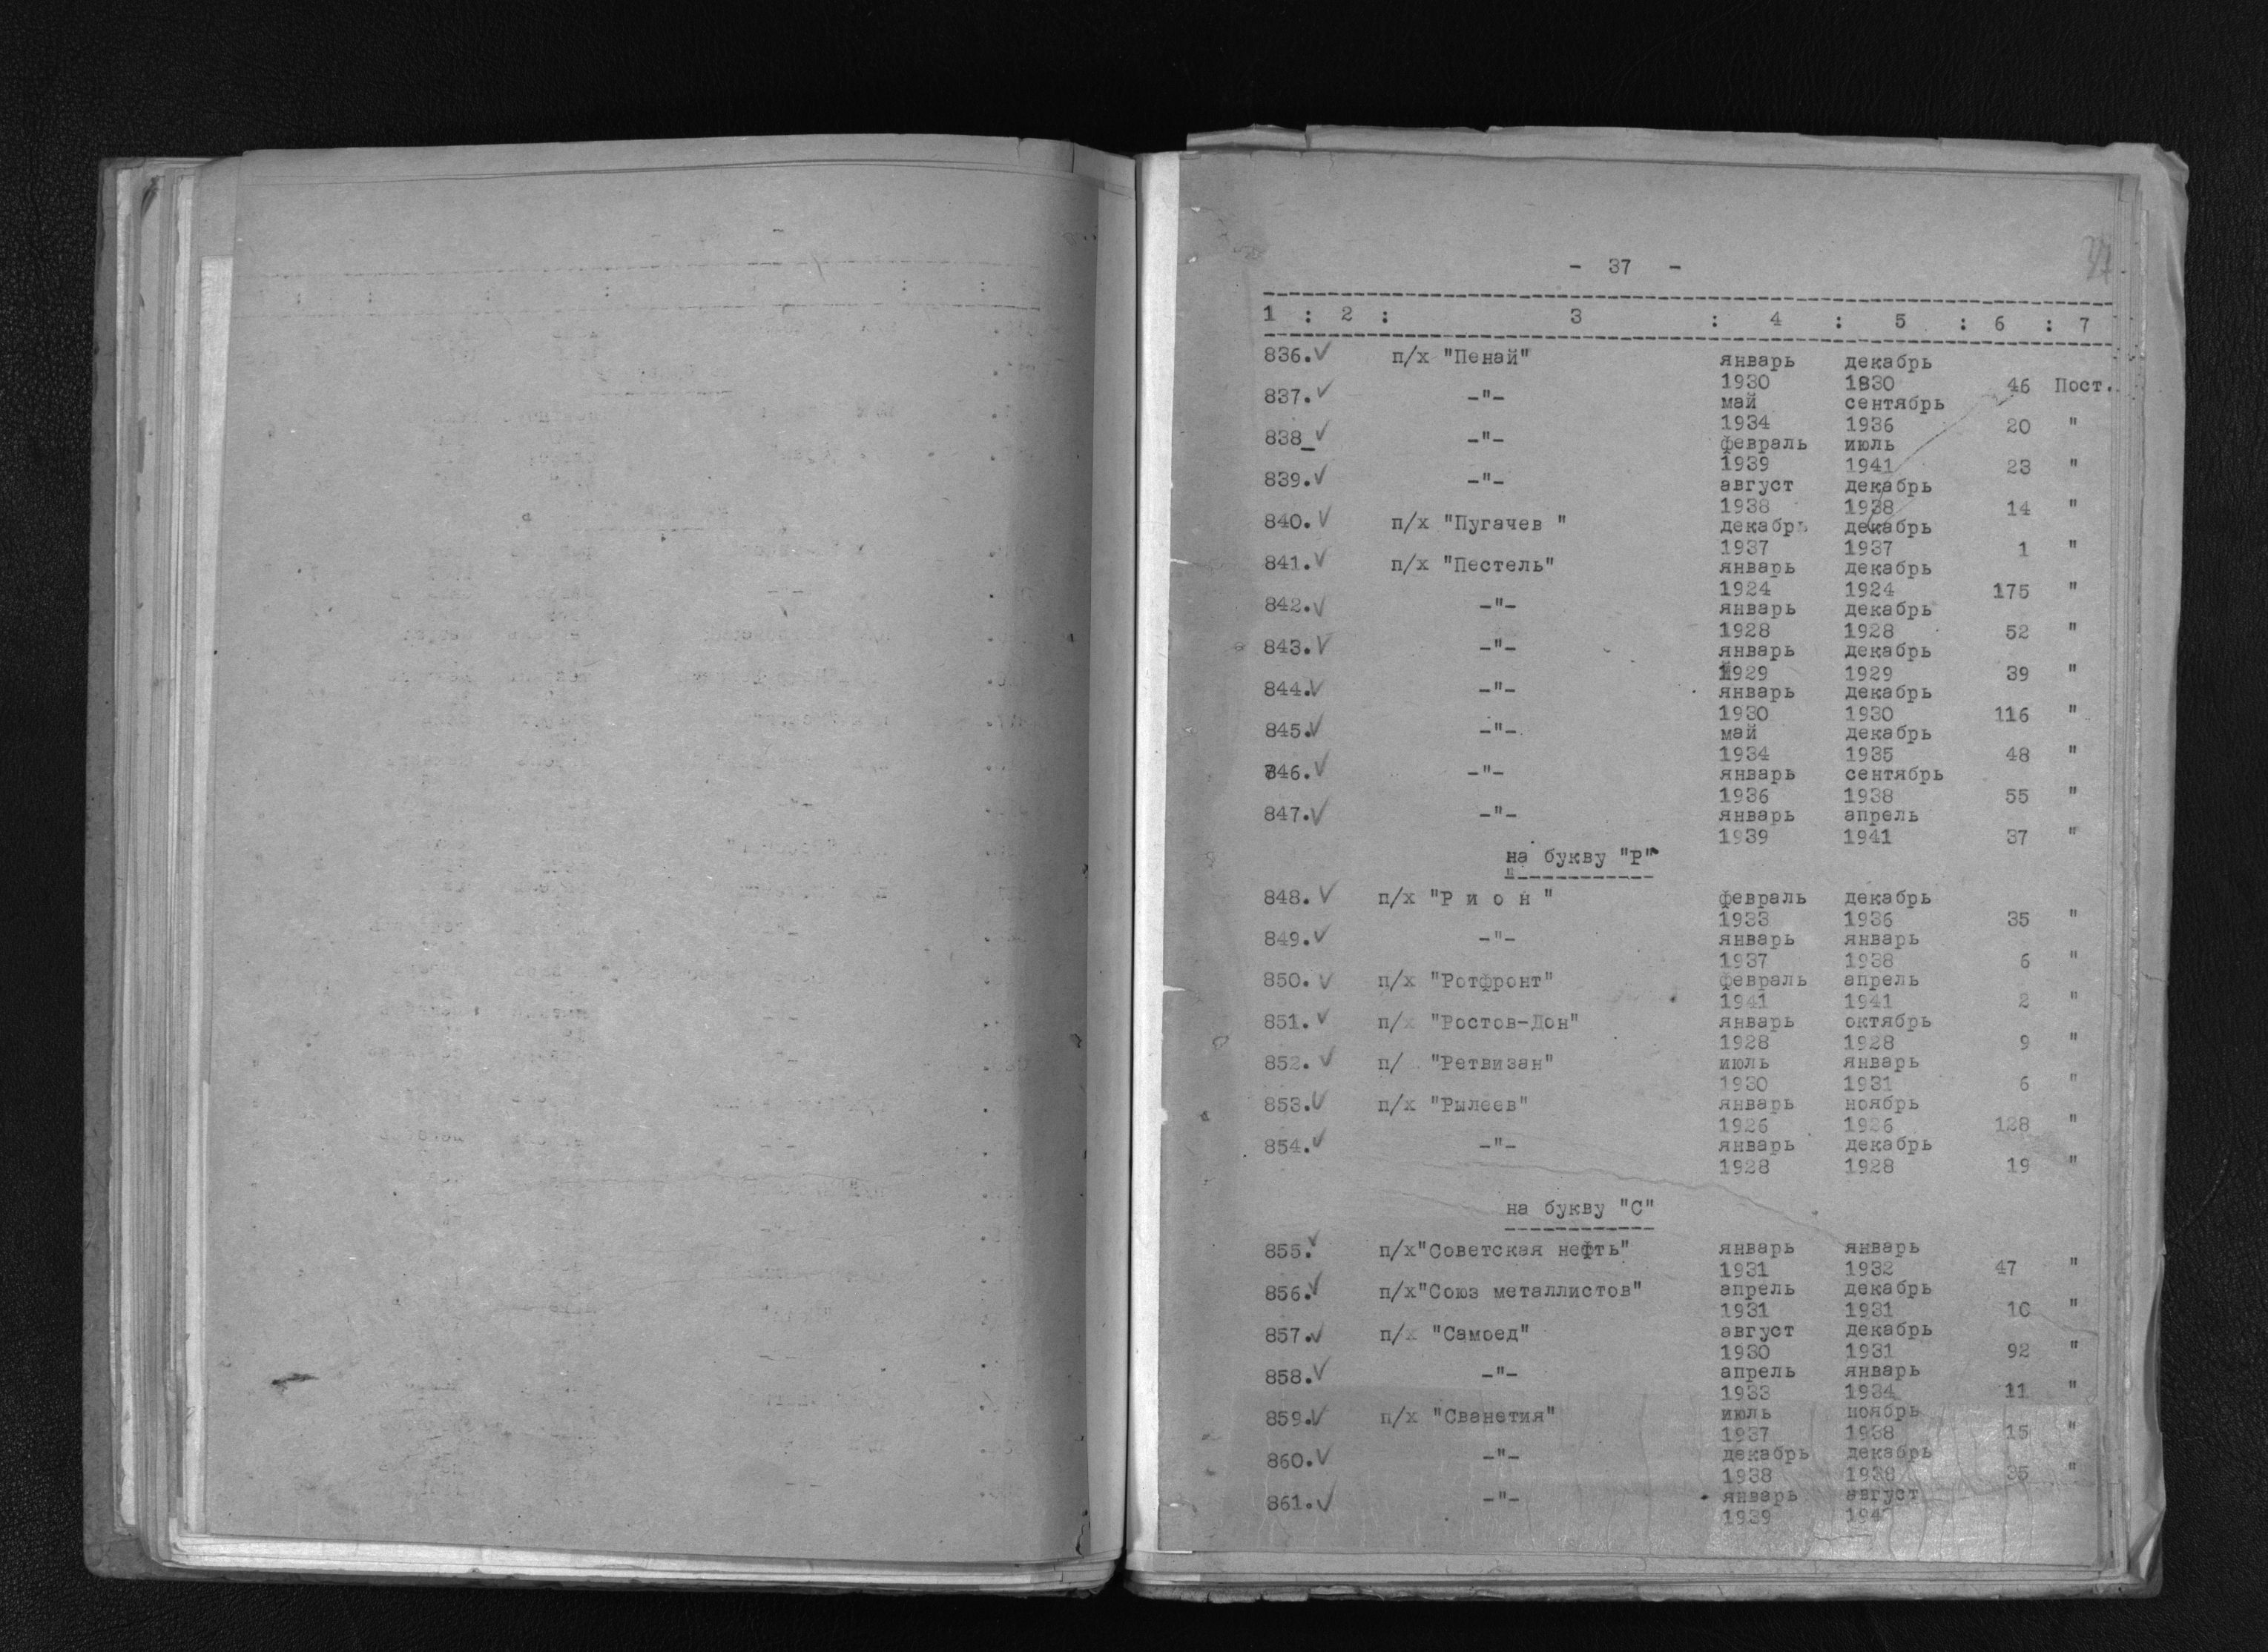 - 37 -
37
1 : 2 : 3 : 4 : 5 : 6 : 7
836.✓ п/х "Пенай" январь декабрь
1930 1830 46 Пост.
837.✓ -"- май сентябрь
1934 1936 20 "
838_✓ -"- февраль июль
1939 1941 23 "
839.✓ -"- август декабрь
1938 1938 14 "
840.✓ п/х "Пугачев " декабрь декабрь
1937 1937 1 "
841.✓ п/х "Пестель" январь декабрь
1924 1924 175 "
842.✓ -"- январь декабрь
1928 1928 52 "
843.✓ -"- январь декабрь
1929 1929 39 "
844.✓ -"- январь декабрь
1930 1930 116 "
845.✓ -"- май декабрь
1934 1935 48 "
846.✓ -"- январь сентябрь
1936 1938 55 "
847.✓ -"- январь апрель
1939 1941 37 "
на букву "Р"
848.✓ п/х "Р и о н " февраль декабрь
1933 1936 35 "
849.✓ -"- январь январь
1937 1938 6 "
850.✓ п/х "Ротфронт" февраль апрель
1941 1941 2 "
851.✓ п/х "Ростов-Дон" январь октябрь
1928 1928 9 "
852.✓ п/ "Ретвизан" июль январь
1930 1931 6 "
853.✓ п/х "Рылеев" январь ноябрь
1926 1926 128 "
854.✓ -"- январь декабрь
1928 1928 19 "
на букву "С"
855.✓ п/х"Советская нефть" январь январь
1931 1932 47 "
856.✓ п/х"Союз металлистов" апрель декабрь
1931 1931 10 "
857.✓ п/х "Самоед" август декабрь
1930 1931 92 "
858.✓ -"- апрель январь
1933 1934 11 "
859.✓ п/х "Сванетия" июль ноябрь
1937 1938 15 "
860.✓ -"- декабрь декабрь
1938 35 "
861.✓ -"- январь август
1939 194